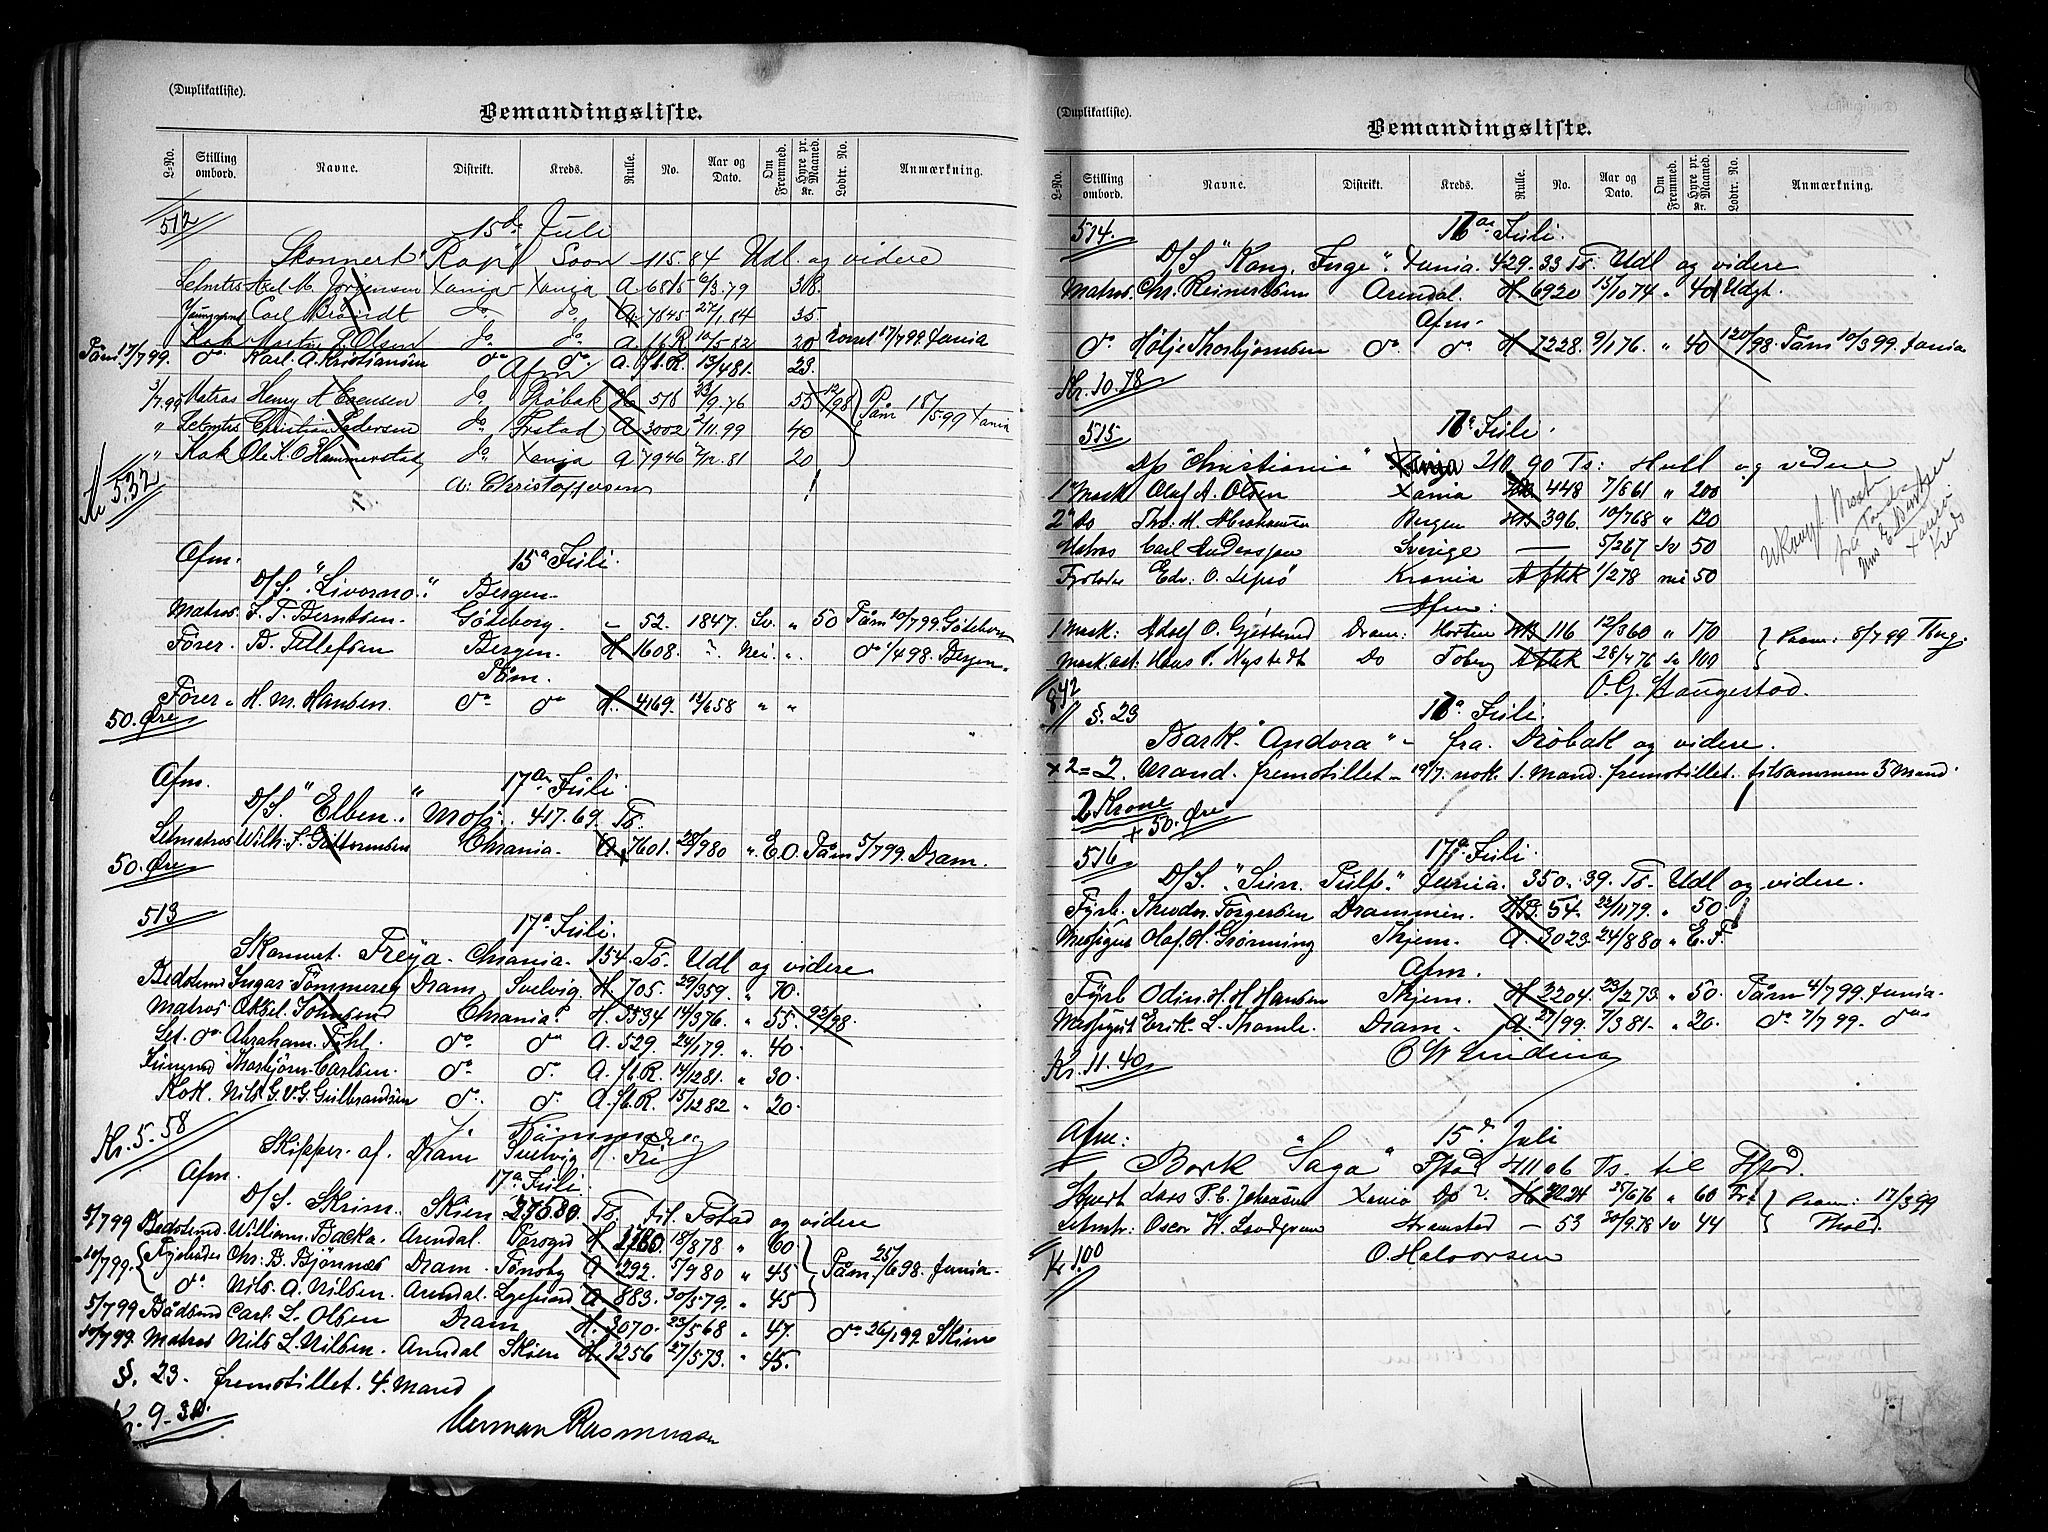 (Duplikatliste).
Bemandingsliste.
L-No. Stilling ombord. Navne. Distrikt. Kreds. Rulle. No. Aar og Dato. Om Fremmed. Hyre pr. Maaned. Kr. Lodtr. No. Anmærkning.
512
15d. Juli
Skonnert "Rap" Soon 115.84 Udl. og videre
Letmtrs Axel M. Jörgensen Xania Xania A 6815 6/3.79 38
Jungmand Carl Brandt do. do. A 7845 27/1.84 35
Kok Martin P. Olsen do. do. A. fl R 10/5 82 20 17/7 99 Xania
Påm 17/7 99. do Karl. A. Kristiansen do do. A. fl. R. 13/4 81. 23.
Afm
3/7.99 Matros Henry A Evensen do. Dröbak H 516 23/9.76 55 12/98 Påm 18/5 99 Xania
" Letmtrs Christian Pedersen do. Frstad A 3002 2/11.99 40
" Kok Ole K. O. Hammerstad do. Xania A 7946 7/12.81 20
A. Christoffersen
Kr 5.32
Afm. 15a Juli.
D/S. "Livorno". Bergen.
Matros. J. P. Berntsen. Göteborg. - 52. 1847. Sv. " 50 Påm 20/7 99. Göteborg
Förer. B. Tellefsen Bergen. H 1608. ?. Nei. ". do 1/4 98. Bergen.
Påm.
Förer " H. M. Hansen. do do H. 4169. 12/6 58 " "
50. Øre
Afm. 17an Juli.
D/S. "Elben". Moss. 417.69. Ts.
Letmatros Wilh. F. Guttormsen Chrania. A 7601. 28/9 80 " E.O. Påm 5/7 99. Dram.
50. Øre
513
17a Juli.
Skonnert. Freya. Chrania. 154. Ts. Udl og videre
Bedstemd Ingar Tömmereg Dram. Svelvig H 705. 29/3 59 " 70.
Matros Aksel Johnsen Chrania. do H 3534 14/3 76 " 55. 92/98.
Let. do. Abraham. Pihl. do do A. 529. 24/1 79. " 40.
Jungmd Thorbjörn Carlsen. do do. A. fl. R. 14/12 81. " 30.
Kok. Nils G. V. G. Gulbrandsen do. do. A. fl. R. 15/12 82 " 20.
Kr. 5.58
Skipper af. Dram Svelvig H. Fri
Afm. 17a Juli.
D/S. Skrim. Skien 256.80. Ts. til. Fstad og videre
5/7 99 Bedstemd William. Backa. Arendal. Porsgrd H 1760. 18/8 78 " 60
10/7 99. Fyrböder Chr. B. Bjönnes Dram. Tönsbg A 292. 5/9 80 " 45 Påm 25/6 98. Xania.
do. Nils. A. Nilsen. Arendal. Lyefjord A 883. 30/5 79. " 45
5/7 99 Bådsmd Carl. L. Olsen Dram H. 3070. 23/5 68 " 47. do 26/1 99. Skien
10/7 99. Matros Nils L. Nilsen. Arendal Skien H. 1256 27/5 73. " 45.
§. 23. fremstillet. 4. Mand
Kr. 9-30.
Herman Rasmussen
(Duplikatliste).
Bemandingsliste.
L-No. Stilling ombord. Navne. Distrikt. Kreds. Rulle. No. Aar og Dato. Om Fremmed. Hyre pr. Maaned. Kr. Lodtr. No. Anmærkning.
514.
17an Juli.
D/S "Kong. Inge". Xania. 429.33 Ts. Udl og videre
Matros. Chr. Reinertsen Arendal. H 6920 15/10 74 " 40 Udgt.
Afm.
do Hölje Thorbjörnsen do. do H 7228. 9/1 76. " 40 120/98. Påm 10/3 99. Xania
Kr. 10.78
515
17a Juli.
D/s "Christiania" Xania 210,90 Ts: Hull og videre
1 Mask Olaf A. Olsen Xania HB 448 7/8 61 " 200
2 do Thv. M. Abrahamsen Bergen HB 396. 10/7 68 " 120
Matros Carl Anderssen Sverige — 5/2 67 Sv 50
Fyrböder Edv. O. Lepsö Krania A flR 1/2 78 nei 50
Afm:
1 Mask: Adolf O. Gjetsund Dram: Horten HB 116 12/3 60 " 170 Paam: 8/7 99 Tbrg.
Mask.ast. Hans P. Nystedt Do Tsberg A flR 28/4 76 Sv 100
O. G. Haugestad.
842
§. 23 17a. Juli.
Bark. "Andora" - fra. Dröbak og videre.
x 2 = 2. Mand. fremstillet - 19/7. nok. 1. Mand. fremstillet. tilsammen 3 Mand.
2 Krone
+ 50. Øre
516 17a Juli.
D/S. "Sün. Pülf." Xania. 350.39. Ts. Udl og videre.
Fyrb. Theodor Torgersen Drammen. HB. 54. 23/11 79. " 50.
Messegut Olaf. H. Grönning Thjem. A. 3023 24/8 80 " E. F.
Afm.
Fyrb Odin. H. H. Hansen Thjem. H 2204. 23/2 73. " 50. Påm 4/7 99. Xania.
Messegut Erik. L. Thomle. Dram. A. 21/99. 7/3 81. " 20. do. 7/7 99. do
Kr. 11.40
Afm: 15d. Juli
Bark "Saga" Fstad 411 06 Ts. til Fstad.
Stuert Lars P. C. Johansen Xania Do H 25/6 76 " 60 Frt Paam: 17/3 99
Letmtr. Oscar W. Lindgren — 53 30/9.78 Sv 44 Fstad.
O. Halvorsen
Kr 1.00